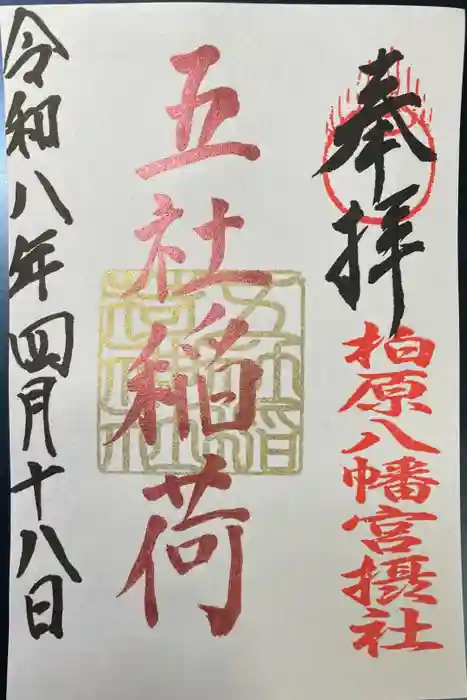 奉拝
柏原八幡宮摂社
五社稲荷
令和八年四月十八日